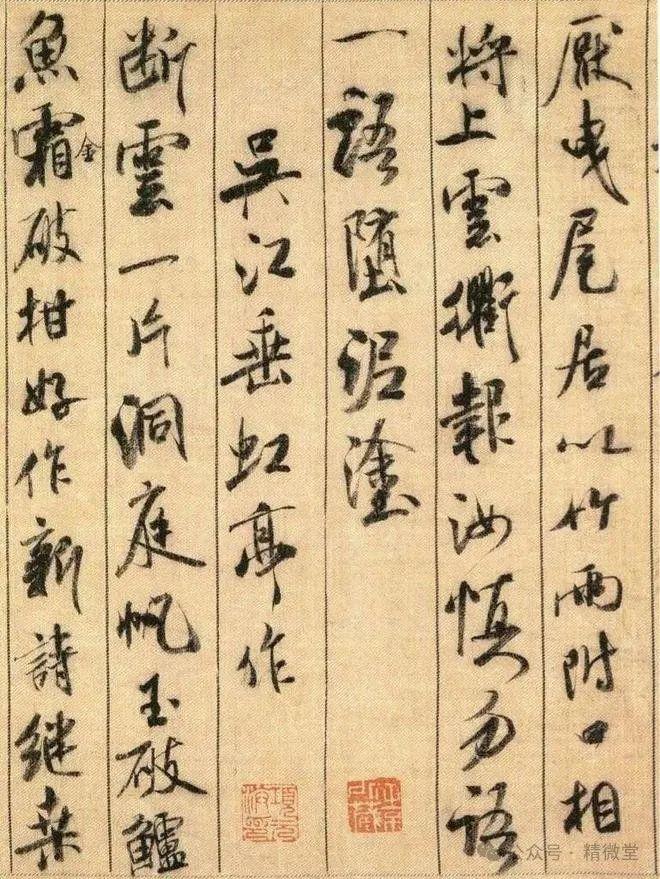 厭曳尾居以竹兩附口相
將上雲衢報汝慎勿語
一語墮泥塗
吳江垂虹亭作
断雲一片洞庭帆玉破鱸
魚霜金破柑好作新詩継桒
公众号 · 精微堂